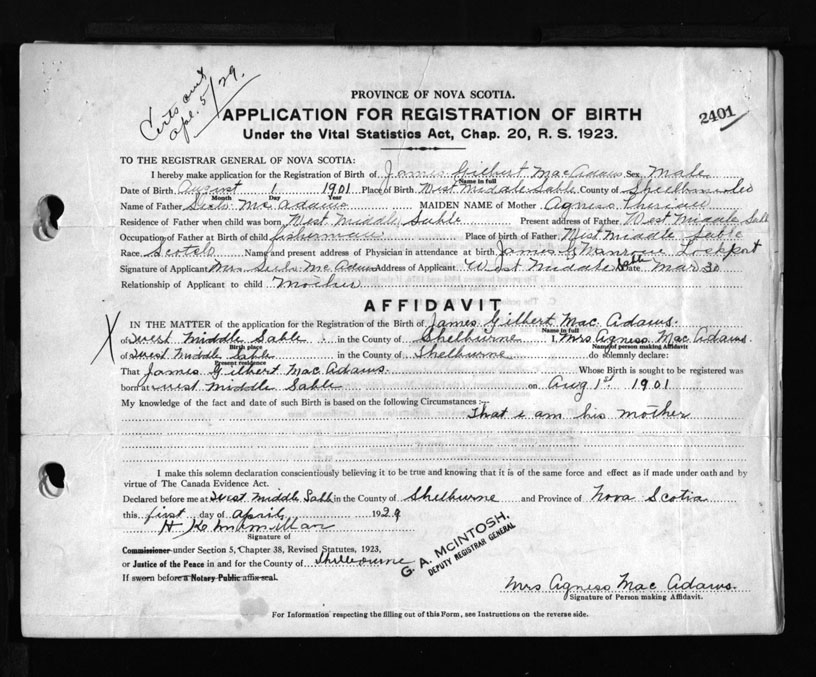 Certs sent
apl. 5/29.
PROVINCE OF NOVA SCOTIA.
2401
APPLICATION FOR REGISTRATION OF BIRTH
Under the Vital Statistics Act, Chap. 20, R. S. 1923.
TO THE REGISTRAR GENERAL OF NOVA SCOTIA:
I hereby make application for the Registration of Birth of James Gilbert MacAdams Sex Male
Name in full
Date of Birth August 1 1901 Place of Birth West Middle Sable County of Shelburne
Month Day Year
Name of Father Mc Adams MAIDEN NAME of Mother Agness
Residence of Father when child was born West Middle Sable Present address of Father West Middle Sable
Occupation of Father at Birth of child fisherman Place of birth of Father West Middle Sable
Race Scotch Name and present address of Physician in attendance at birth James Lockport
Signature of Applicant Mrs Mc Adams Address of Applicant West Middle Sable Date Mar 30
Relationship of Applicant to child Mother
AFFIDAVIT
IN THE MATTER of the application for the Registration of the Birth of James Gilbert Mac Adams.
Name in full
X of West Middle Sable in the County of Shelburne I, Mrs Agness Mac Adams.
Birth place Name of person making Affidavit
of West Middle Sable in the County of Shelburne do solemnly declare:
Present residence
That James Gilbert Mac Adams. Whose Birth is sought to be registered was
born at West Middle Sable on Aug 1st 1901
My knowledge of the fact and date of such Birth is based on the following Circumstances :—
That i am his mother
I make this solemn declaration conscientiously believing it to be true and knowing that it is of the same force and effect as if made under oath and by
virtue of The Canada Evidence Act.
Declared before me at West Middle Sable in the County of Shelburne and Province of Nova Scotia
this first day of April 1929
H
Signature of
Commissioner under Section 5, Chapter 38, Revised Statutes, 1923,
or Justice of the Peace in and for the County of Shelburne
If sworn before a Notary Public affix seal.
G. A. McINTOSH,
DEPUTY REGISTRAR GENERAL
Mrs Agness Mac Adams.
Signature of Person making Affidavit.
For Information respecting the filling out of this Form, see Instructions on the reverse side.